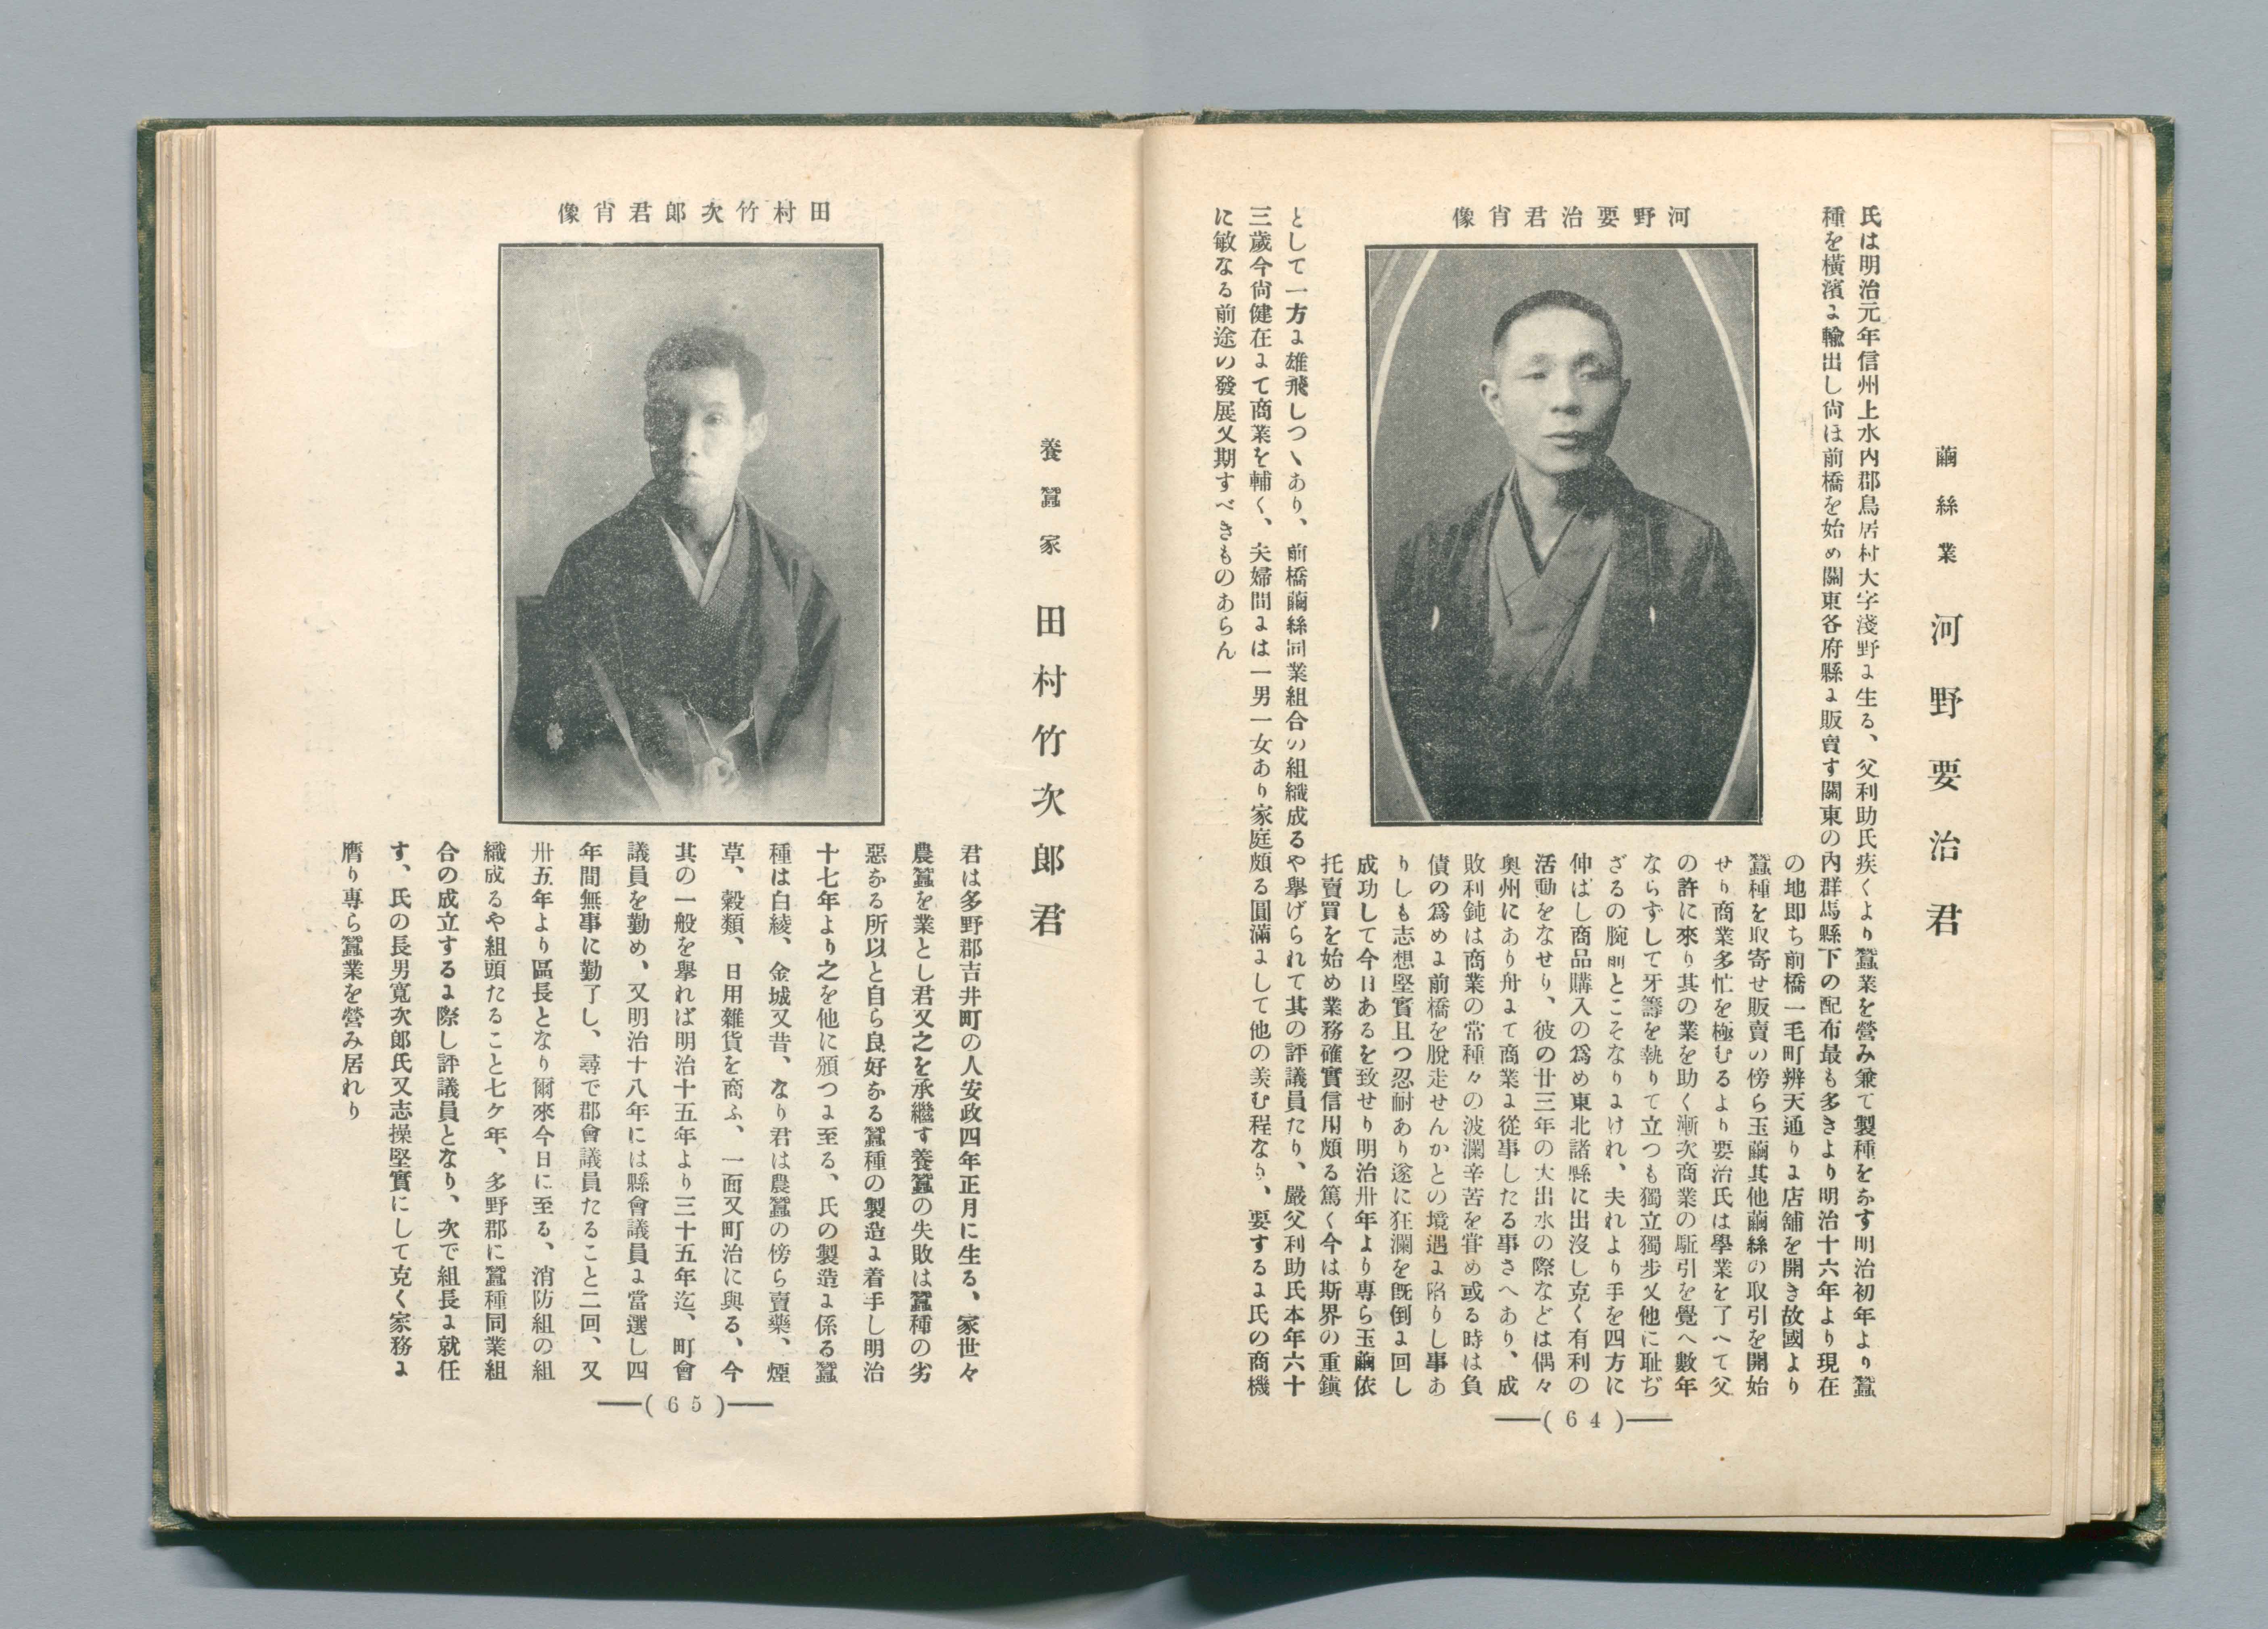 繭絲業　河野要治君
河野要治君肖像
氏は明治元年信州上水内郡鳥居村大字淺野に生る、父利助氏疾くより蠶業を營み兼て製種をなす明治初年より蠶
種を橫濱に輸出し尙ほ前橋を始め關東各府縣に販賣す關東の内群馬縣下の配布最も多きより明治十六年より現在
の地即ち前橋一毛町辨天通りに店舖を開き故國より
蠶種を取寄せ販賣の傍ら玉繭其他繭絲の取引を開始
せり商業多忙を極むるより要治氏は學業を了へて父
の許に來り其の業を助く漸次商業の駈引を覺へ數年
ならずして牙籌を執りて立つも獨立獨步又他に耻ぢ
ざるの腕前とこそなりにけれ、夫れより手を四方に
伸ばし商品購入の爲め東北諸縣に出沒し克く有利の
活動をなせり、彼の廿三年の大出水の際などは偶々
奥州にあり舟にて商業に從事したる事さへあり、成
敗利鈍は商業の常種々の波瀾辛苦を甞め或る時は負
債の爲めに前橋を脫走せんかとの境遇に陷りし事あ
りしも志想堅實且つ忍耐あり遂に狂瀾を旣倒に回し
成功して今日あるを致せり明治卅年より專ら玉繭依
托賣買を始め業務確實信用頗る篤く今は斯界の重鎭
として一方に雄飛しつゝあり、前橋繭絲同業組合の組織成るや擧げられて其の評議員たり、嚴父利助氏本年六十
三歲今尙健在にて商業を輔く、夫婦間には一男一女あり家庭頗る圓滿にして他の羨む程なり、要するに氏の商機
に敏なる前途の發展又期すべきものあらん
—(64)—
養蠶家　田村竹次郎君
田村竹次郎君肖像
君は多野郡吉井町の人安政四年正月に生る、家世々
農蠶を業とし君又之を承繼す養蠶の失敗は蠶種の劣
惡なる所以と自ら良好なる蠶種の製造に着手し明治
十七年より之を他に頒つに至る、氏の製造に係る蠶
種は白綾、金城又昔、なり君は農蠶の傍ら賣藥、煙
草、穀類、日用雜貨を商ふ、一面又町治に與る、今
其の一般を擧れば明治十五年より三十五年迄、町會
議員を勤め、又明治十八年には縣會議員に當選し四
年間無事に勤了し、尋で郡會議員たること二回、又
卅五年より區長となり爾來今日に至る、消防組の組
織成るや組頭たること七ケ年、多野郡に蠶種同業組
合の成立するに際し評議員となり、次で組長に就任
す、氏の長男寬次郎氏又志操堅實にして克く家務に
膺り專ら蠶業を營み居れり
—(65)—